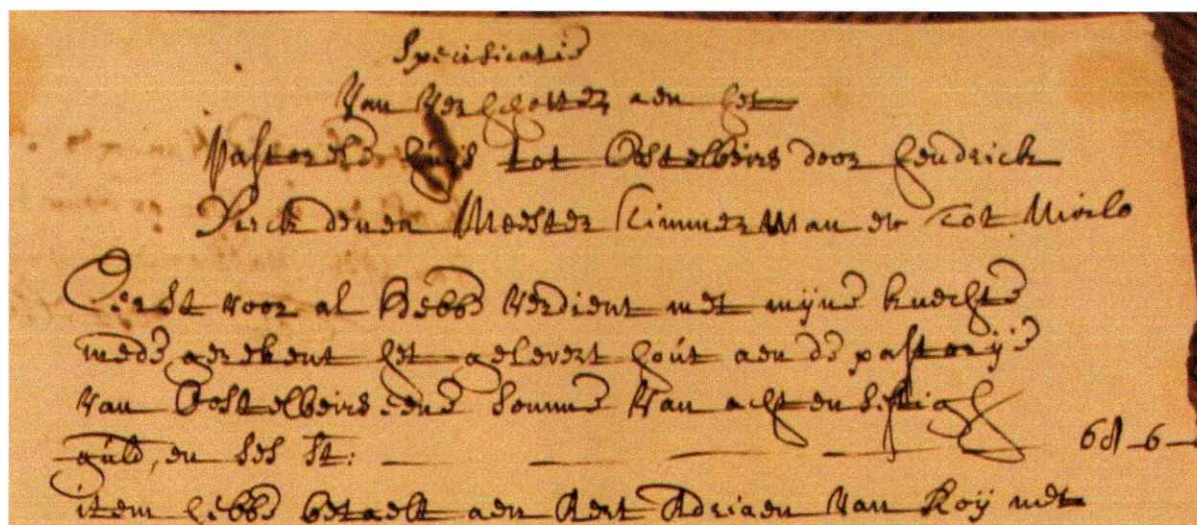 Specificatie
Van Verschotten aen het
Pastorele huijs tot Oostelbeirs door hendrick
denen Meester Timmerman tot Mierlo
Eerst voor al hebbe verdient met mijne knechte
mede gerekent het gelevert hout aen de pastorije
van Oostelbeirs eene somme van acht en sestigh
guld, en ses st: 68-6-
item hebbe betaelt aen Aert Adriaen van Roij met